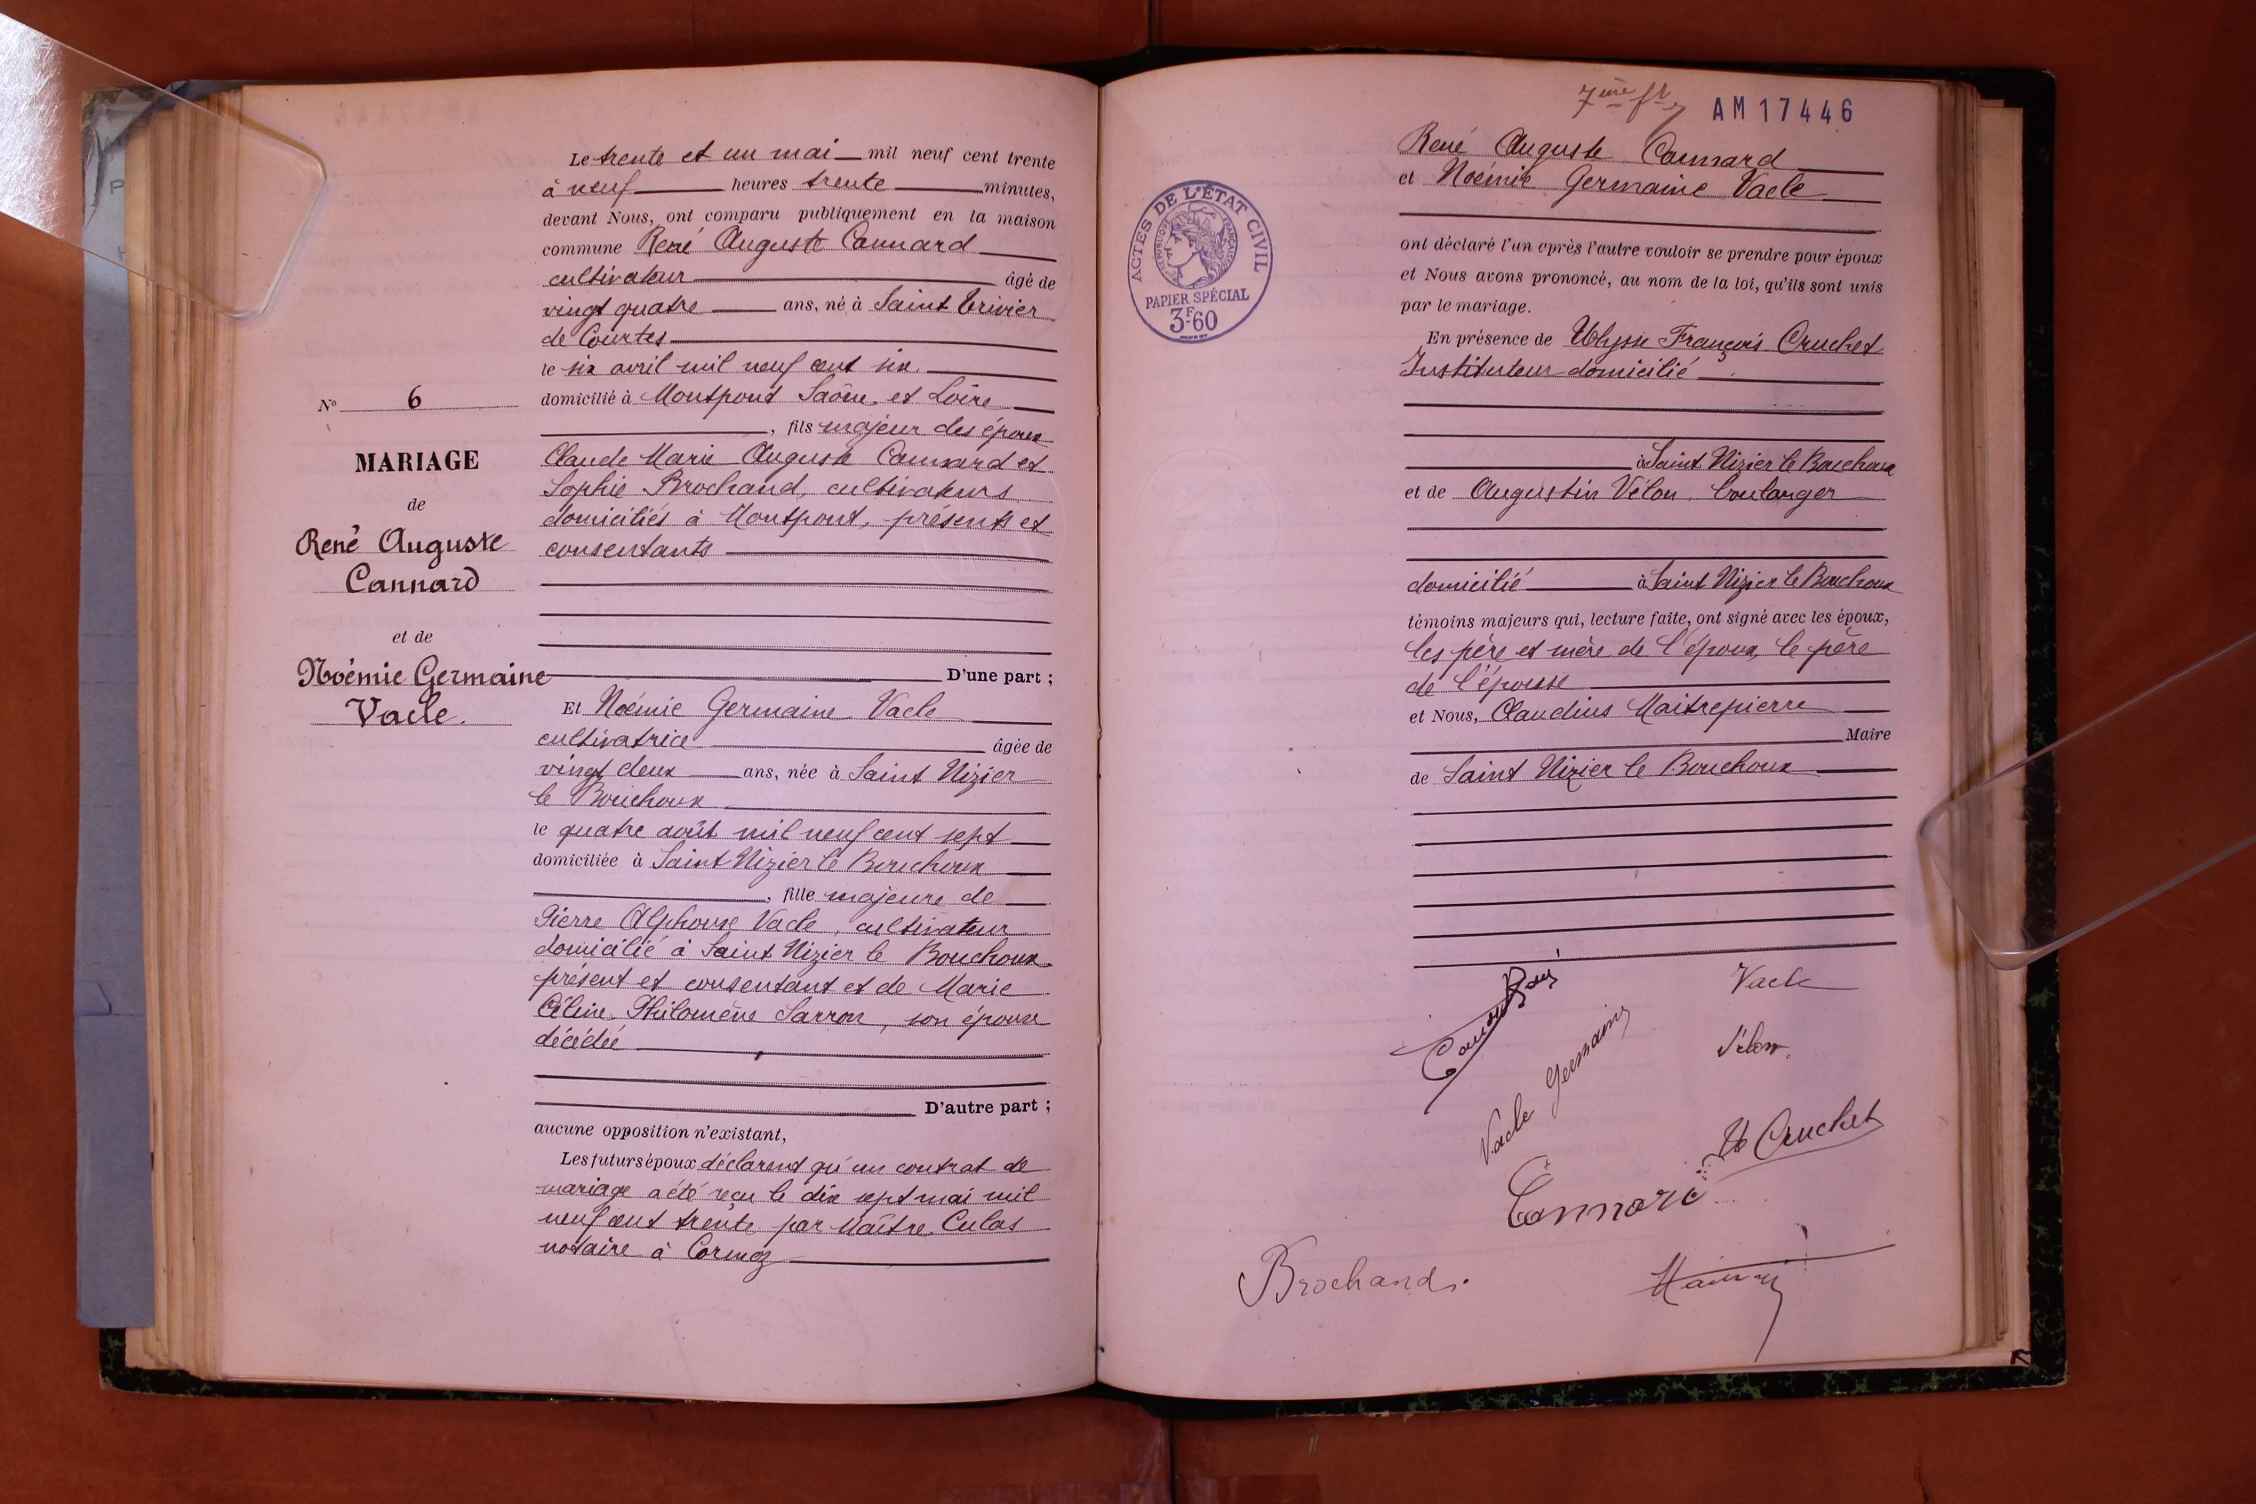 Le trente et un mai mil neuf cent trente
à neuf heures trente minutes,
devant Nous, ont comparu publiquement en la maison
commune René Auguste Cannard
cultivateur âgé de
vingt quatre ans, né à Saint Trivier
de Courtes
le six avril mil neuf cent six.
domicilié à Montpont Saône et Loire
, fils majeur des époux
Claude Marie Auguste Cannard et
Sophie Brochand, cultivateurs
domiciliés à Montpont, présents et
consentants
D'une part ;
Nº 6
MARIAGE
de
René Auguste
Cannard
et de
Noémie Germaine
Vacle.
Et Noémie Germaine Vacle
cultivatrice âgée de
vingt deux ans, née à Saint Nizier
le Bouchoux
le quatre août mil neuf cent sept
domiciliée à Saint Nizier le Bouchoux
, fille majeure de
Pierre Alphonse Vacle, cultivateur
domicilié à Saint Nizier le Bouchoux
présent et consentant et de Marie
Céline Philomène Sarron, son épouse
décédée
D'autre part ;
aucune opposition n'existant,
Les futurs époux déclarent qu'un contrat de
mariage a été reçu le dix sept mai mil
neuf cent trente par Maître Culas
notaire à Cormoz
7ème
AM 17446
ACTES DE L'ÉTAT CIVIL
RÉPUBLIQUE FRANÇAISE
PAPIER SPÉCIAL
3F60
René Auguste Cannard
et Noémie Germaine Vacle
ont déclaré l'un après l'autre vouloir se prendre pour époux
et Nous avons prononcé, au nom de la loi, qu'ils sont unis
par le mariage.
En présence de Ulysse François Cruchet
Instituteur domicilié
à Saint Nizier le Bouchoux
et de Augustin Vélon boulanger
domicilié à Saint Nizier le Bouchoux
témoins majeurs qui, lecture faite, ont signé avec les époux,
les père et mère de l'époux, le père
de l'épouse
et Nous, Claudius Maitrepierre
Maire
de Saint Nizier le Bouchoux
Cannard René
Vacle
Vacle Germaine
Vélon
U Cruchet
Cannard
Brochand.